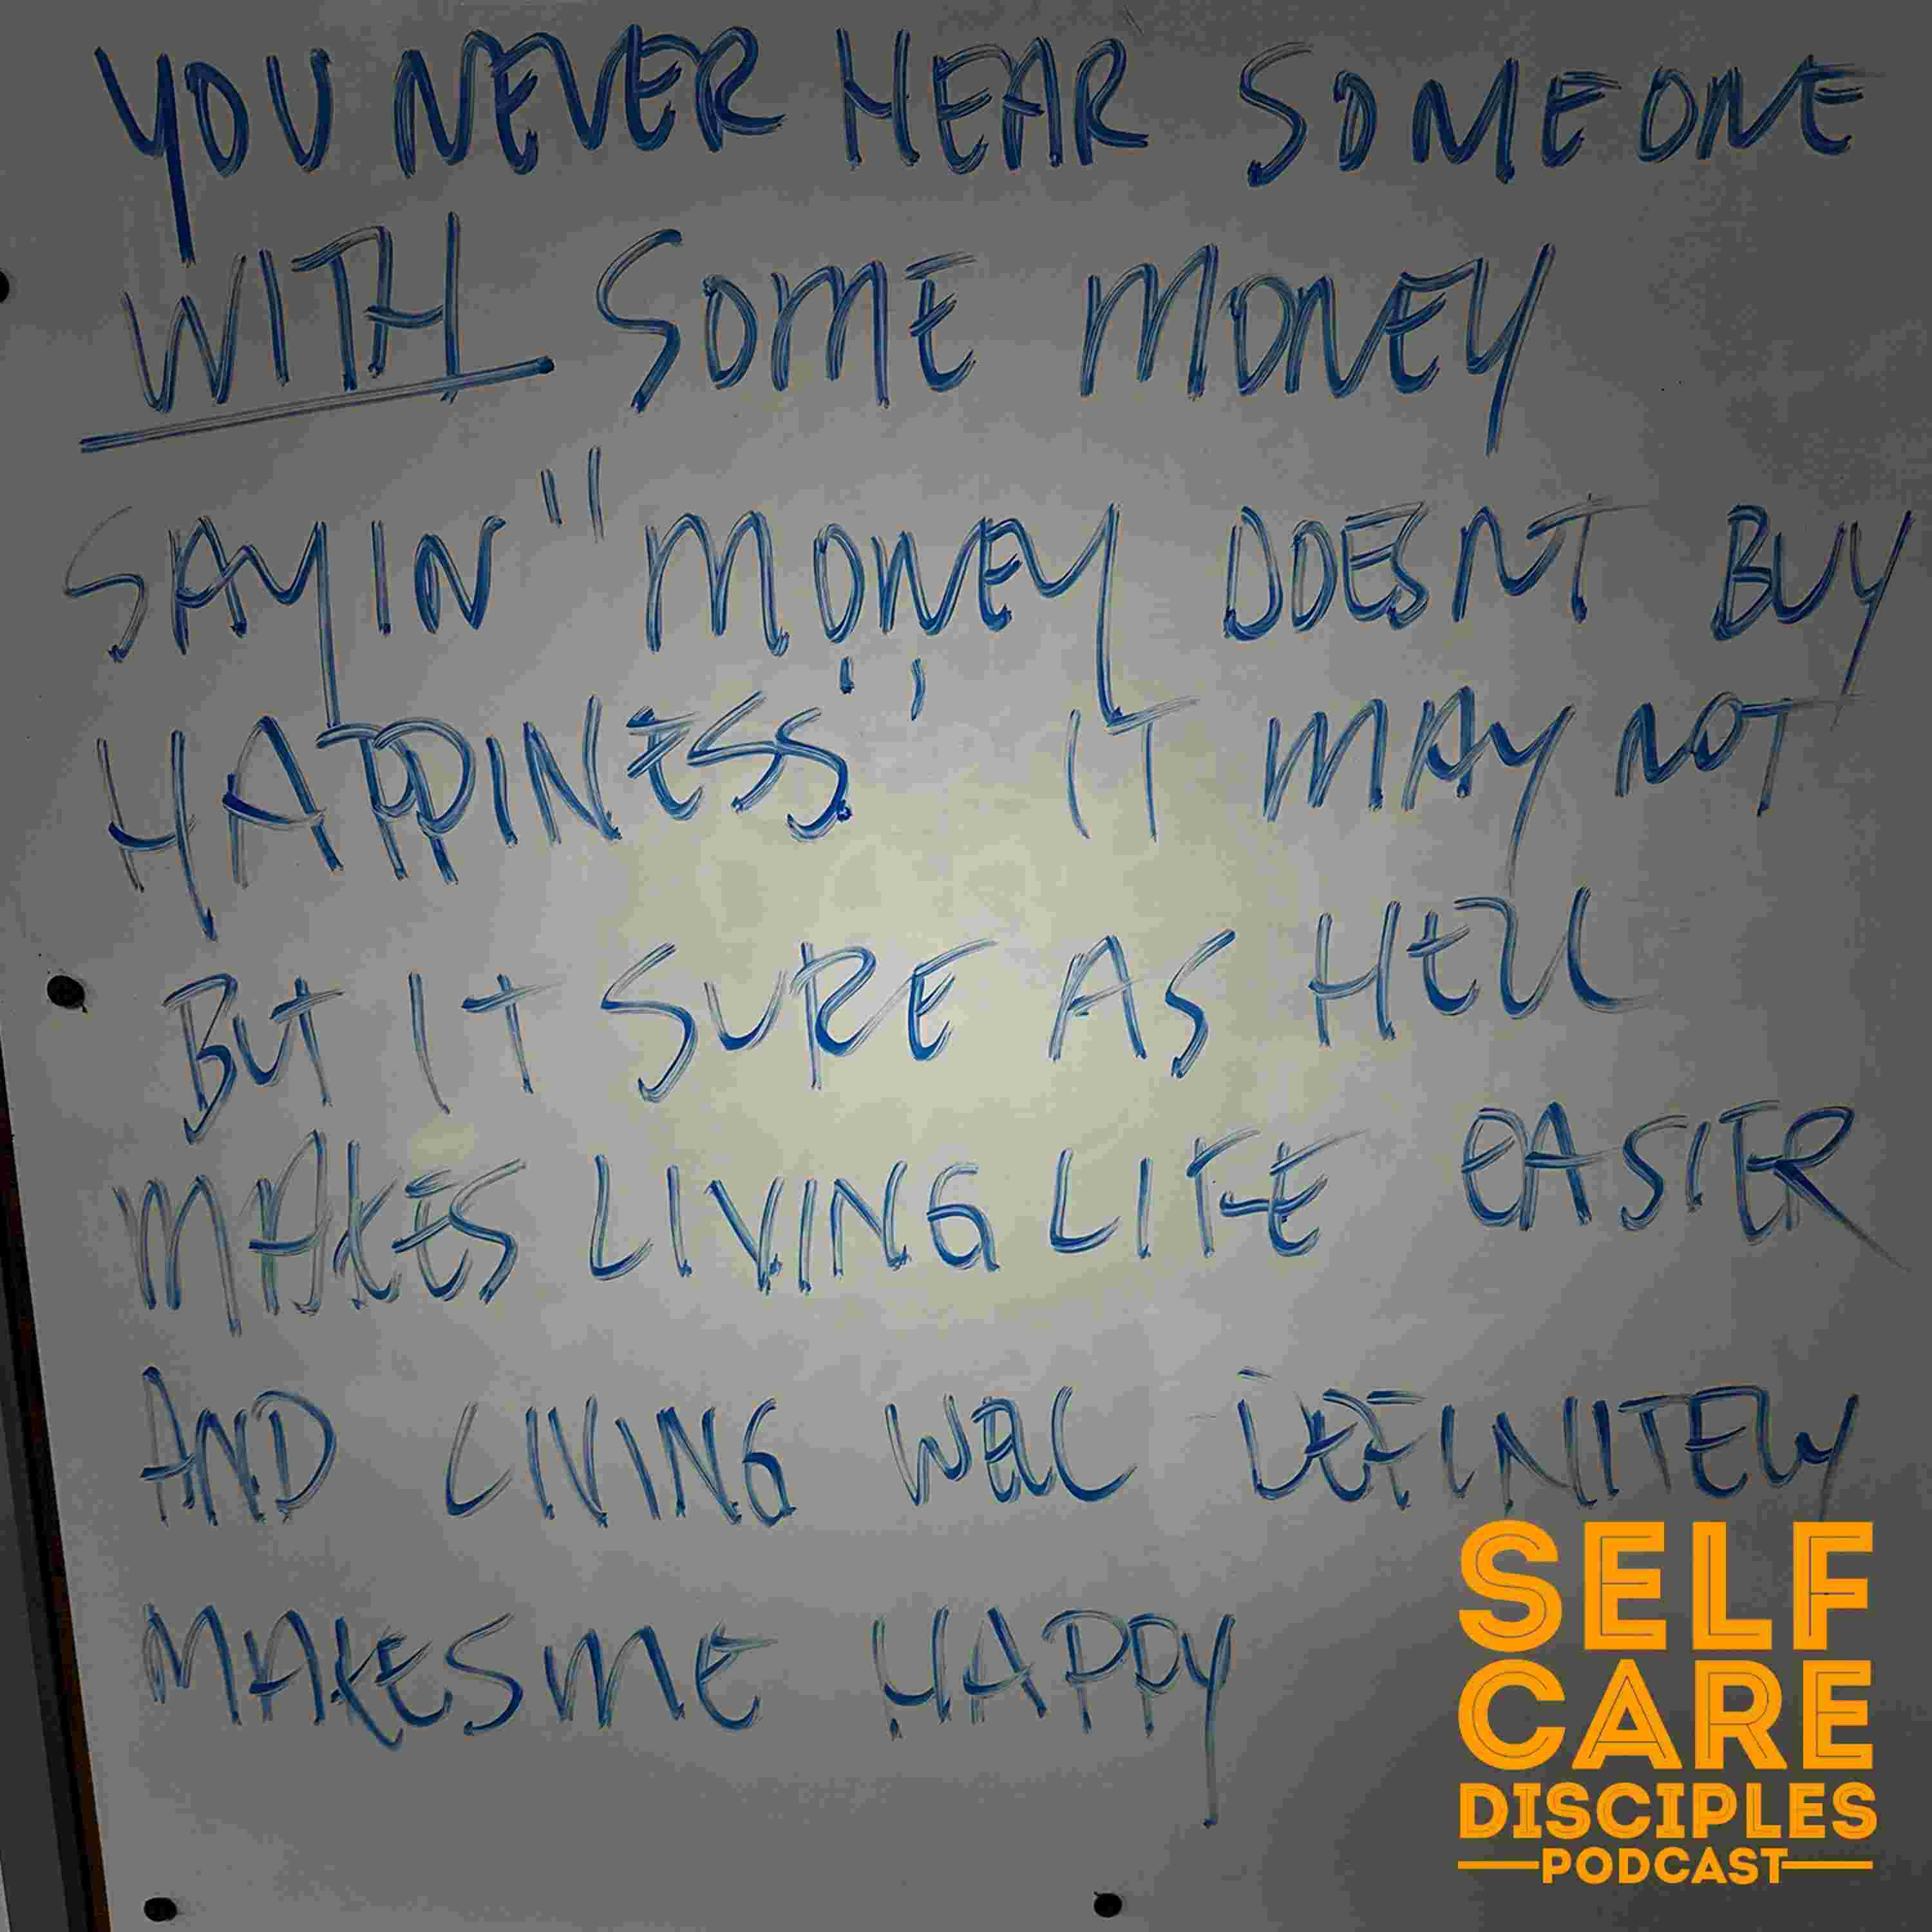 YOU NEVER HEAR SOMEONE
WITH SOME MONEY
SAYIN "MONEY DOESNT BUY
HAPPINESS" IT MAY NOT
BUT IT SURE AS HELL
MAKES LIVING LIFE EASIER
AND LIVING WELL DEFINITELY
MAKES ME HAPPY
SELF
CARE
DISCIPLES
PODCAST